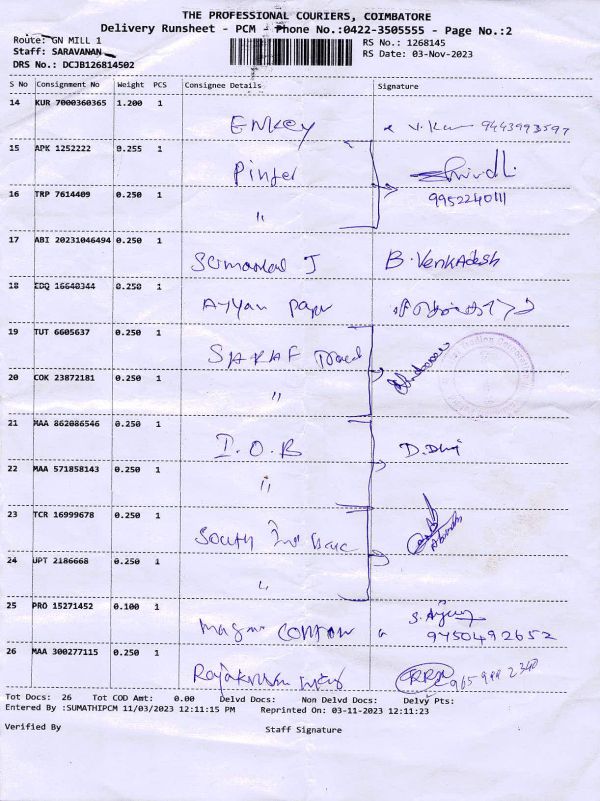 THE PROFESSIONAL COURIERS, COIMBATORE
Delivery Runsheet - PCM - Phone No.:0422-3505555 - Page No.:2
Route: GN MILL 1
RS No.: 1268145
Staff: SARAVANAN
RS Date: 03-Nov-2023
DRS No.: DCJB126814502
S No Consignment No Weight PCS Consignee Details Signature
14 KUR 7000360365 1.200 1
ENKEY V. K 9443993597
15 APK 1252222 0.255 1
Pinter
16 TRP 7614409 0.250 1
" 9952240111
17 ABI 20231046494 0.250 1
J B. Venkadesh
18 EDQ 16640344 0.250 1
Ayyan Paper
19 TUT 6605637 0.250 1
SARAF
20 COK 23872181 0.250 1
"
21 MAA 862086546 0.250 1
I.O.B D.
22 MAA 571858143 0.250 1
"
23 TCR 16999678 0.250 1
South
24 UPT 2186668 0.250 1
"
25 PRO 15271452 0.100 1
Magna Cotton S.
9750492652
26 MAA 300277115 0.250 1
Tot Docs: 26 Tot COD Amt: 0.00 Delvd Docs: Non Delvd Docs: Delvy Pts:
Entered By :SUMATHIPCM 11/03/2023 12:11:15 PM Reprinted On: 03-11-2023 12:11:23
Verified By Staff Signature